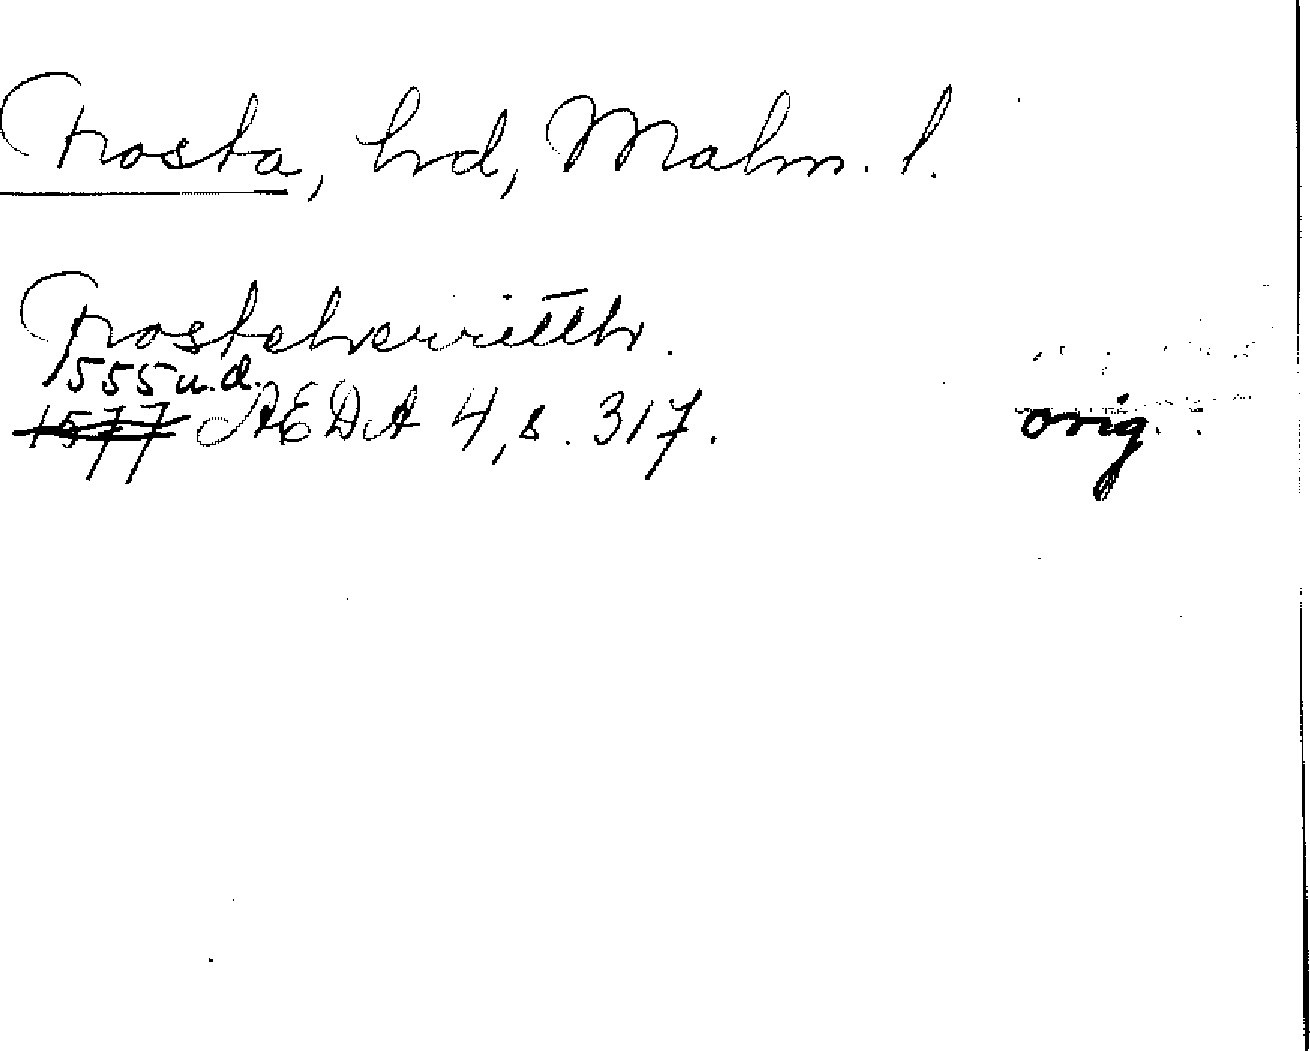 Frosta, hrd, Malm. l.
Frostaherritth.
1555 u.d.
1577 AEDA 4, s. 317. orig.